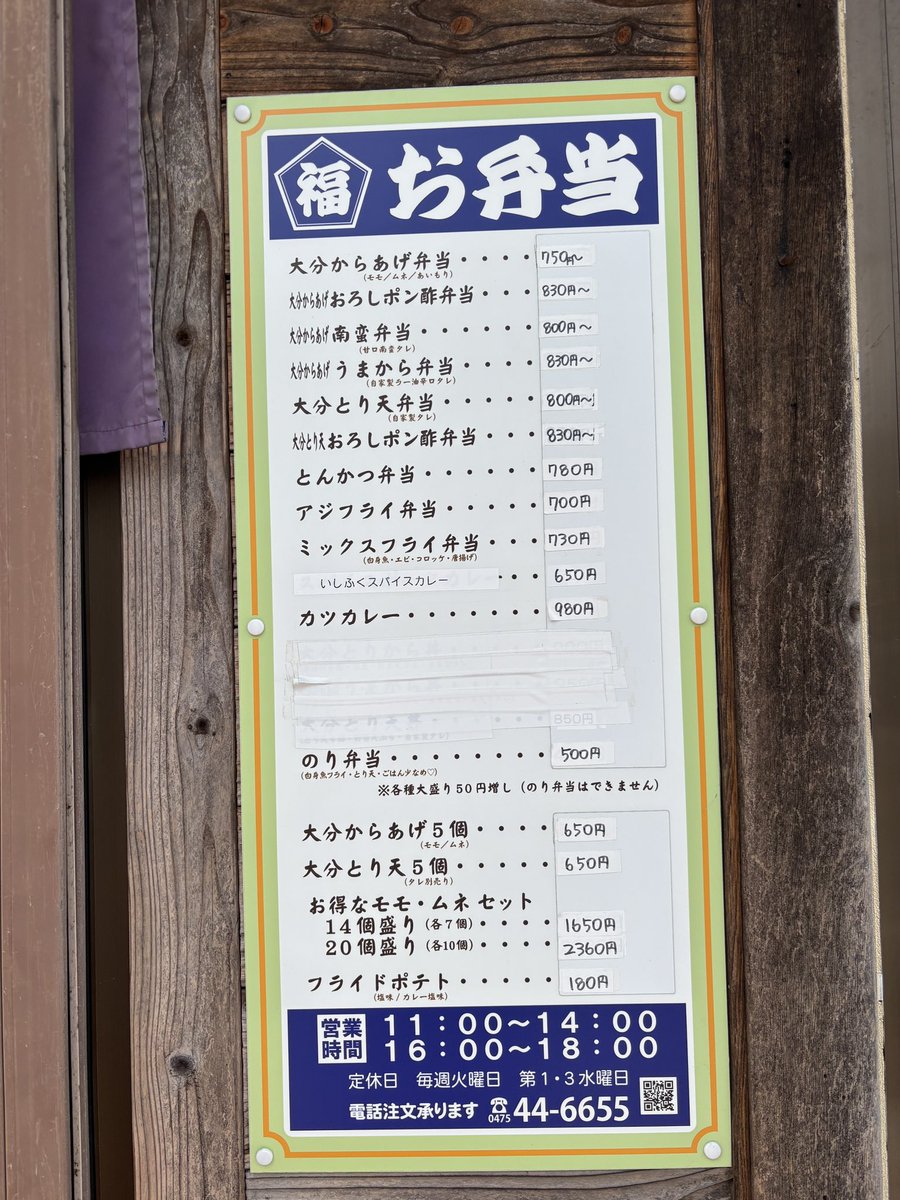 福 お弁当
大分からあげ弁当・・・・750円〜
(モモ/ムネ/あいもり)
大分からあげおろしポン酢弁当・・・830円〜
大分からあげ南蛮弁当・・・・・・800円〜
(甘口南蛮タレ)
大分からあげうまから弁当・・・・830円〜
(自家製ラー油辛口タレ)
大分とり天弁当・・・・・800円〜
(自家製タレ)
大分とり天おろしポン酢弁当・・・830円〜
とんかつ弁当・・・・・・780円
アジフライ弁当・・・・・700円
ミックスフライ弁当・・・730円
(白身魚・エビ・コロッケ・唐揚げ)
いしふくスパイスカレー・・・650円
カツカレー・・・・・・・980円
850円
のり弁当・・・・・・・・500円
(白身魚フライ・とり天・ごはん少なめ♡)
※各種大盛り50円増し(のり弁当はできません)
大分からあげ5個・・・・650円
(モモ/ムネ)
大分とり天5個・・・・・650円
(タレ別売り)
お得なモモ・ムネセット
14個盛り(各7個)・・・・1650円
20個盛り(各10個)・・・・2360円
フライドポテト・・・・・180円
(塩味/カレー塩味)
営業時間 11:00〜14:00
16:00〜18:00
定休日 毎週火曜日 第1・3水曜日
電話注文承ります ☎0475 44-6655